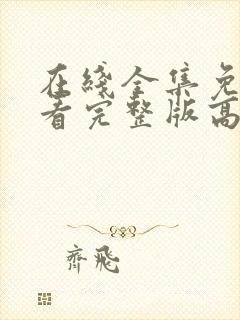 在綫全集免
看完整版高
齊飛